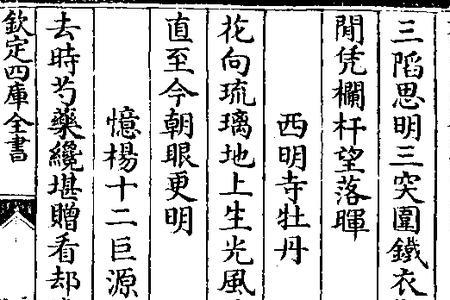 三䧟思明三突圍鐵衣
閒凭欄杆望落暉
西明寺牡丹
花向琉璃地上生光風
直至今朝眼更明
憶楊十二巨源
去時芍藥纔堪贈看却
欽定四庫全書